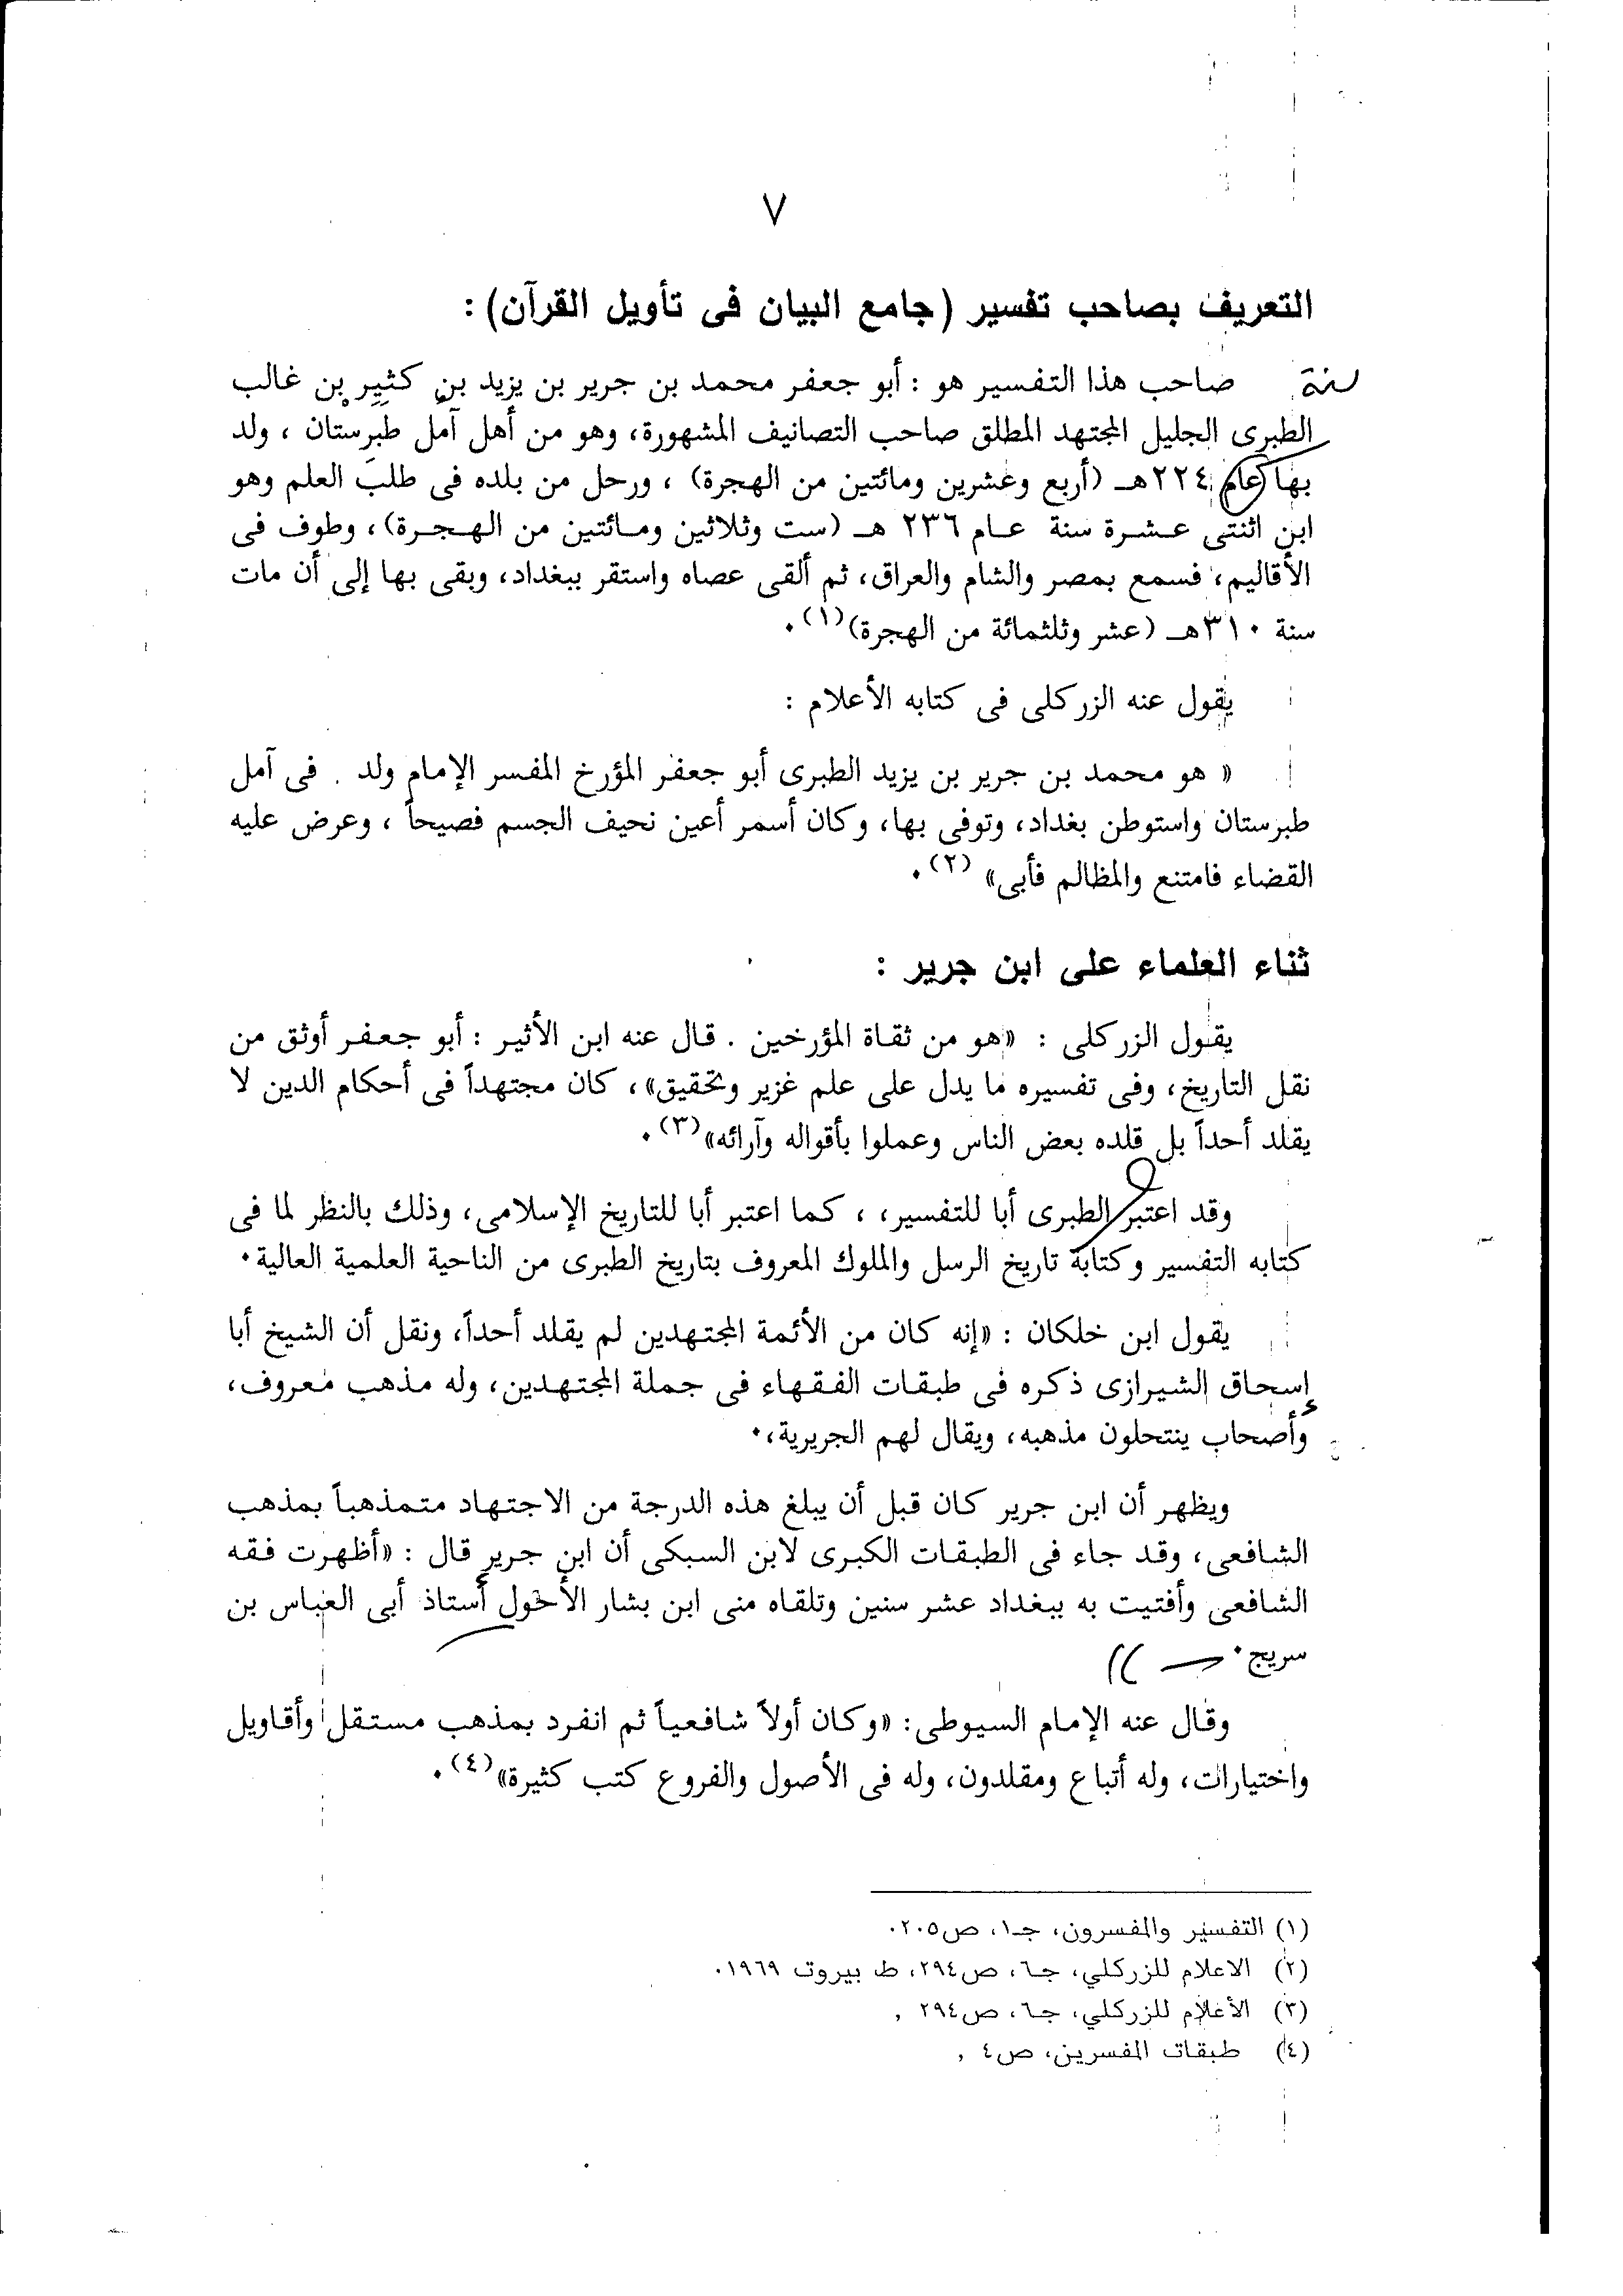 ٧
التعريف بصاحب تفسير (جامع البيان فى تأويل القرآن) :
سنة
صاحب هذا التفسير هو : أبو جعفر محمد بن جرير بن يزيد بن كثير بن غالب
الطبرى الجليل المجتهد المطلق صاحب التصانيف المشهورة، وهو من أهل آمل طبرستان ، ولد
بها عام ٢٢٤هـ (أربع وعشرين ومائتين من الهجرة) ، ورحل من بلده فى طلب العلم وهو
ابن اثنتى عشرة سنة عام ٢٣٦ هـ (ست وثلاثين ومائتين من الهجرة)، وطوف فى
الأقاليم، فسمع بمصر والشام والعراق، ثم ألقى عصاه واستقر ببغداد، وبقى بها إلى أن مات
سنة ٣١٠هـ (عشر وثلثمائة من الهجرة)(١).
يقول عنه الزركلى فى كتابه الأعلام :
« هو محمد بن جرير بن يزيد الطبرى أبو جعفر المؤرخ المفسر الإمام ولد . فى آمل
طبرستان واستوطن بغداد، وتوفى بها، وكان أسمر أعين نحيف الجسم فصيحاً ، وعرض عليه
القضاء فامتنع والمظالم فأبى» (٢).
ثناء العلماء على ابن جرير :
يقول الزركلى : «هو من ثقاة المؤرخين . قال عنه ابن الأثير : أبو جعفر أوثق من
نقل التاريخ، وفى تفسيره ما يدل على علم غزير وتحقيق»، كان مجتهداً فى أحكام الدين لا
يقلد أحداً بل قلده بعض الناس وعملوا بأقواله وآرائه»(٣).
وقد اعتبر الطبرى أبا للتفسير، ، كما اعتبر أبا للتاريخ الإسلامى، وذلك بالنظر لما فى
كتابه التفسير وكتابة تاريخ الرسل والملوك المعروف بتاريخ الطبرى من الناحية العلمية العالية.
يقول ابن خلكان : «إنه كان من الأئمة المجتهدين لم يقلد أحداً، ونقل أن الشيخ أبا
إسحاق الشيرازى ذكره فى طبقات الفقهاء فى جملة المجتهدين، وله مذهب معروف،
وأصحاب ينتحلون مذهبه، ويقال لهم الجريرية،.
ويظهر أن ابن جرير كان قبل أن يبلغ هذه الدرجة من الاجتهاد متمذهباً بمذهب
الشافعى، وقد جاء فى الطبقات الكبرى لابن السبكى أن ابن جرير قال : «أظهرت فقه
الشافعى وأفتيت به ببغداد عشر سنين وتلقاه منى ابن بشار الأحول أستاذ أبى العباس بن
سريج. ))
وقال عنه الإمام السيوطى: «وكان أولاً شافعياً ثم انفرد بمذهب مستقل وأقاويل
واختيارات، وله أتباع ومقلدون، وله فى الأصول والفروع كتب كثيرة»(٤).
(١) التفسير والمفسرون، جـ١، ص٢٠٥.
(٢) الاعلام للزركلي، جـ٦، ص٢٩٤، ط بيروت ١٩٦٩.
(٣) الأعلام للزركلي، جـ٦، ص٢٩٤ ,
(٤) طبقات المفسرين، ص٤ ,